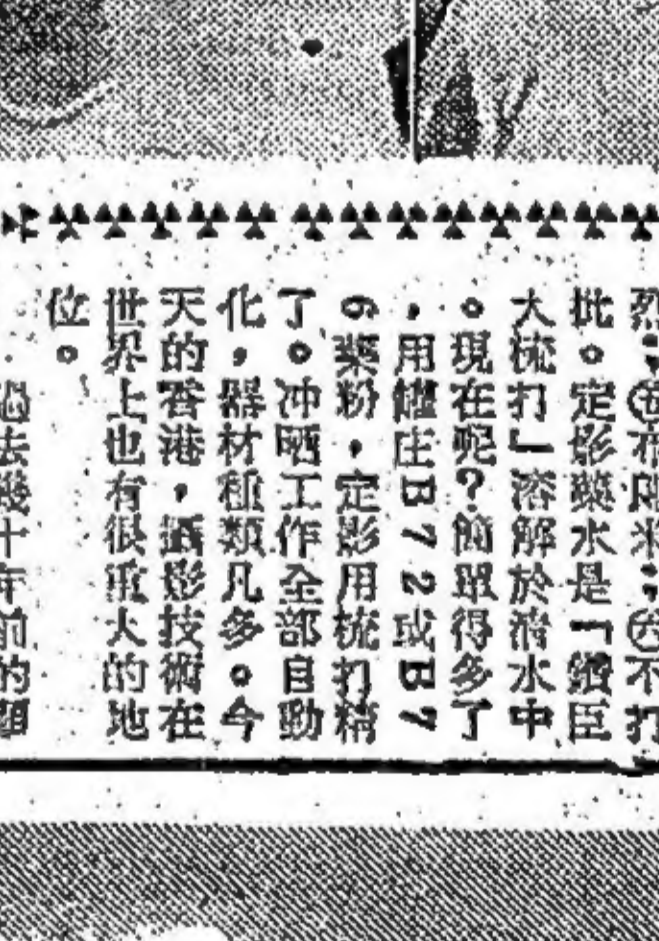 烈，㊄布隆米；㊅不打
批。定影藥水是「鑽臣
大梳打」溶解於清水中
。現在呢？簡單得多了
，用罐庄B72或B7
6藥粉，定影用梳打精
了。冲晒工作全部自動
化，器材種類凡多。今
天的香港，攝影技術在
世界上也有很重大的地
位。
過去幾十年前的